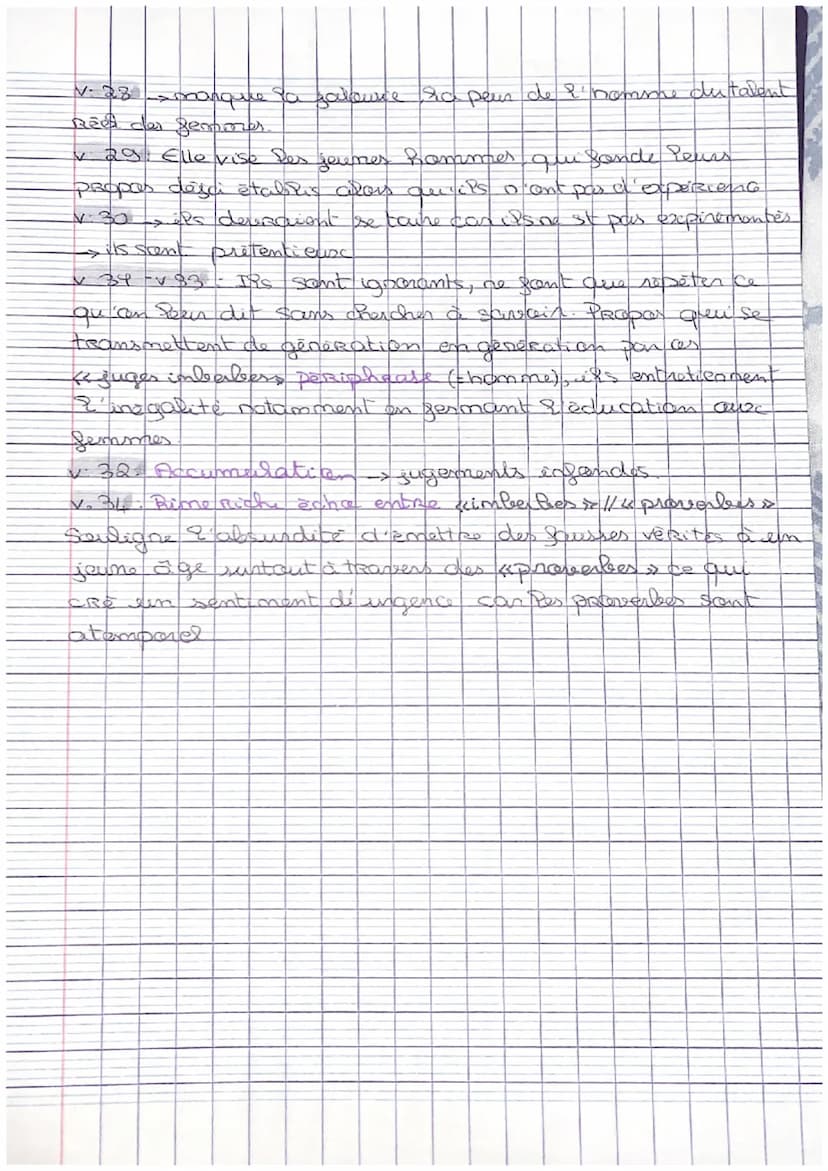 v. 28 → marque la jalousie, la peur de l'homme du talent
Réel des femmes.
v. 29 : Elle vise les jeunes hommes, qui fonde leurs
propos déjà établis alors qu'ils n'ont pas d'expérience
v. 30 → ils devraient se taire car ils ne st pas expirementés
→ ils sont prétentieux
v 31 - v 33 : Ils sont ignorants, ne font que répéter ce
qu'on leur dit sans chercher à savoir. Propos qui se
transmettent de génération en génération par ces
« juges imberbes » périphrase (= homme), ils entretiennent
l'inégalité notamment en fermant l'éducation aux
femmes.
v. 32. Accumulation → jugements infondés.
v. 34. Rime Riche écho entre « imberbes » // « proverbes »
Souligne l'absurdité d'émettre des fausses vérités à un
jeune âge surtout à travers des « proverbes » ce qui
cRé un sentiment d'urgence car les proverbes sont
atemporel